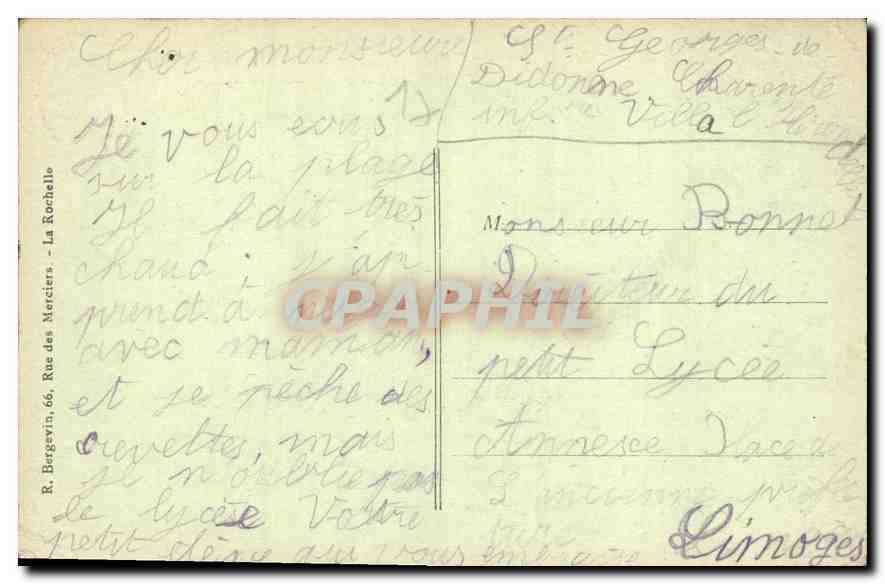 Cher monsieur
Je vous ecris
sur la plage
Il fait très
chaud, j'ap
prend à
avec maman,
et je pêche des
crevettes, mais
je n'oublie pas
le lycée Votre
petit élève qui vous
St Georges de
Didonne Charente
inf. Villa l'Hiron
delle
Monsieur Bonnet
Directeur du
petit Lycée
Annexe Place de
L'ancienne préfec
ture
Limoges
R. Bergevin, 66, Rue des Merciers. - La Rochelle
CPAPHIL